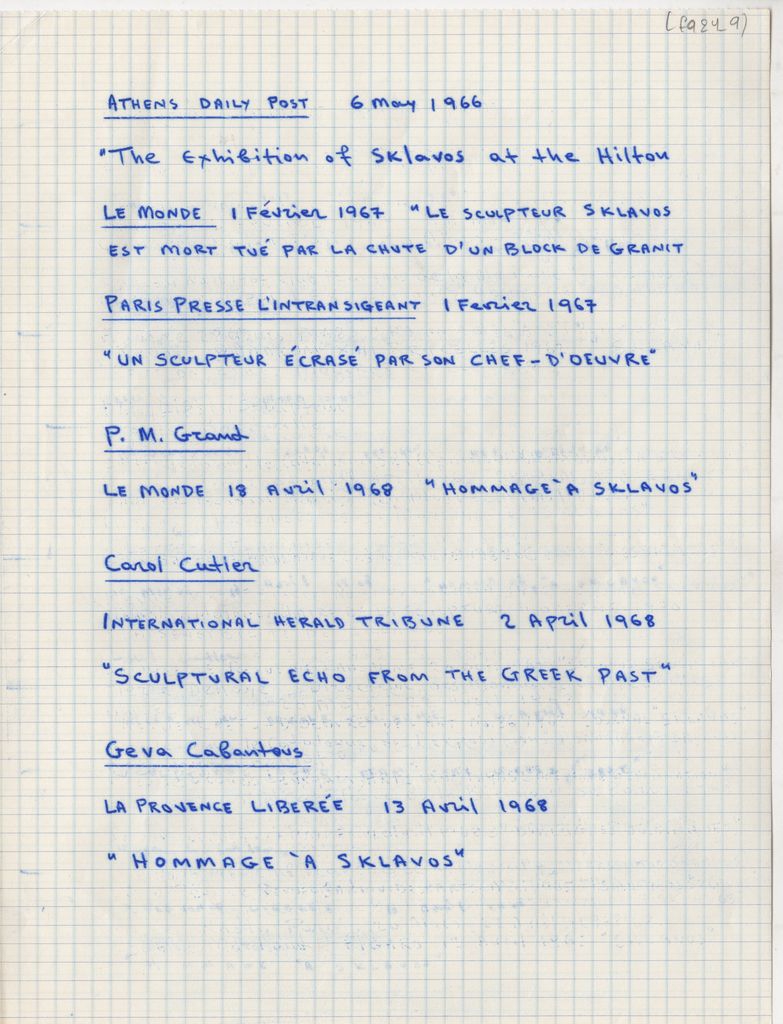 ATHENS DAILY POST 6 May 1966
"The Exhibition of Sklavos at the Hilton
LE MONDE 1 Février 1967 "LE SCULPTEUR SKLAVOS
EST MORT TUÉ PAR LA CHUTE D'UN BLOCK DE GRANIT
PARIS PRESSE L'INTRANSIGEANT 1 Fevrier 1967
"UN SCULPTEUR ÉCRASÉ PAR SON CHEF-D'OEUVRE"
P. M. Grand
LE MONDE 18 Avril 1968 "HOMMAGE À SKLAVOS"
Carol Cutler
INTERNATIONAL HERALD TRIBUNE 2 April 1968
"SCULPTURAL ECHO FROM THE GREEK PAST"
Geva Cabantous
LA PROVENCE LIBERÉE 13 Avril 1968
"HOMMAGE À SKLAVOS"